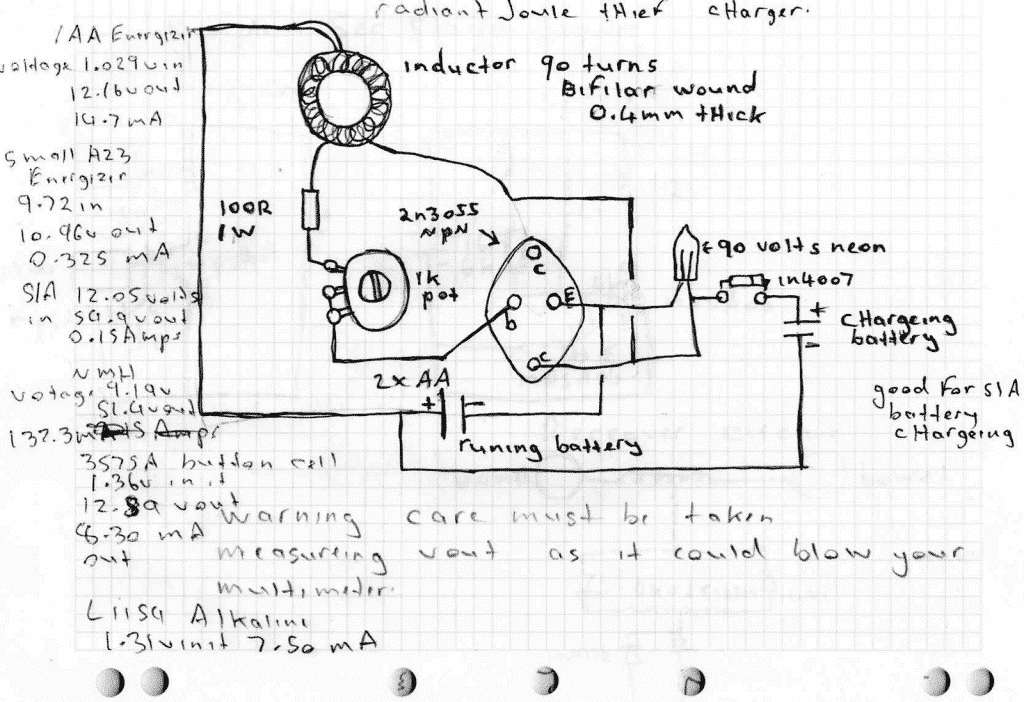 radiant Joule tHief cHarger.
1AA Energizer
voltage 1.029vin
12.16vout
14.7mA
Small A23
Energizer
9.72in
10.96v out
0.325 mA
S/A 12.05volts
in 59.9vout
0.15Amps
NMH
votage 9.19v
51.4vout
132.3mA
357SA button cell
1.36v in it
12.89 vout
8.30 mA
out
L1154 Alkaline
1.31vinit 7.50 mA
inductor 90 turns
Bifilar wound
0.4mm tHick
100R
1W
1k
pot
2n3055
NpN
C
E
b
C
90 volts neon
1n4007
+
-
cHargeing
battery
good for S/A
battery
cHargeing
2xAA
+
-
runing battery
Warning care must be taken
measureing vout as it could blow your
multimeter.